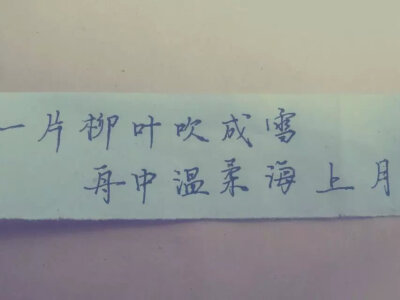 一片柳叶吹成雪
舟中温柔海上月